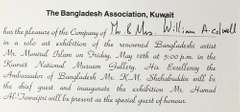 The Bangladesh Association, Kuwait
has the pleasure of the Company of Mr. & Mrs. William A. Colwell
in a solo art exhibition of the renowned Bangladeshi artist
Mr. Monirul Islam on Friday, May 18th at 5:00 p.m. in the
Kuwait National Museum Gallery. His Excellency the
Ambassador of Bangladesh Mr. K.M. Shehabuddin will be
the chief guest and inaugurate the exhibition Mr. Hamad
Al-Towaijri will be present as the special guest of honour.